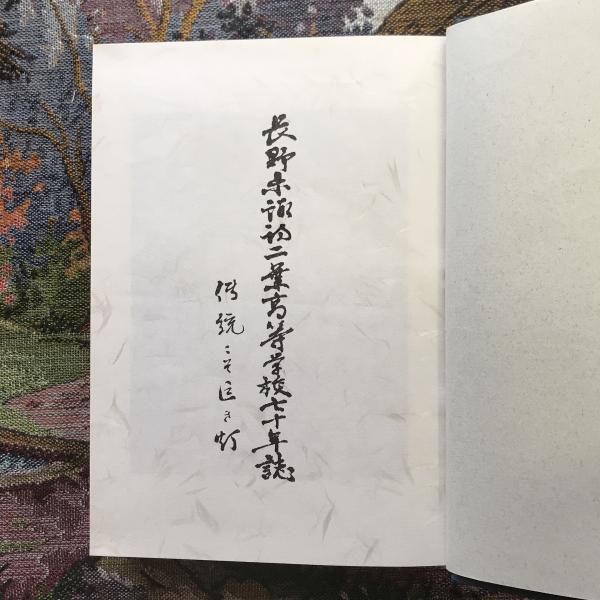 長野県諏訪二葉高等学校七十年誌
伝統こそ巨き灯